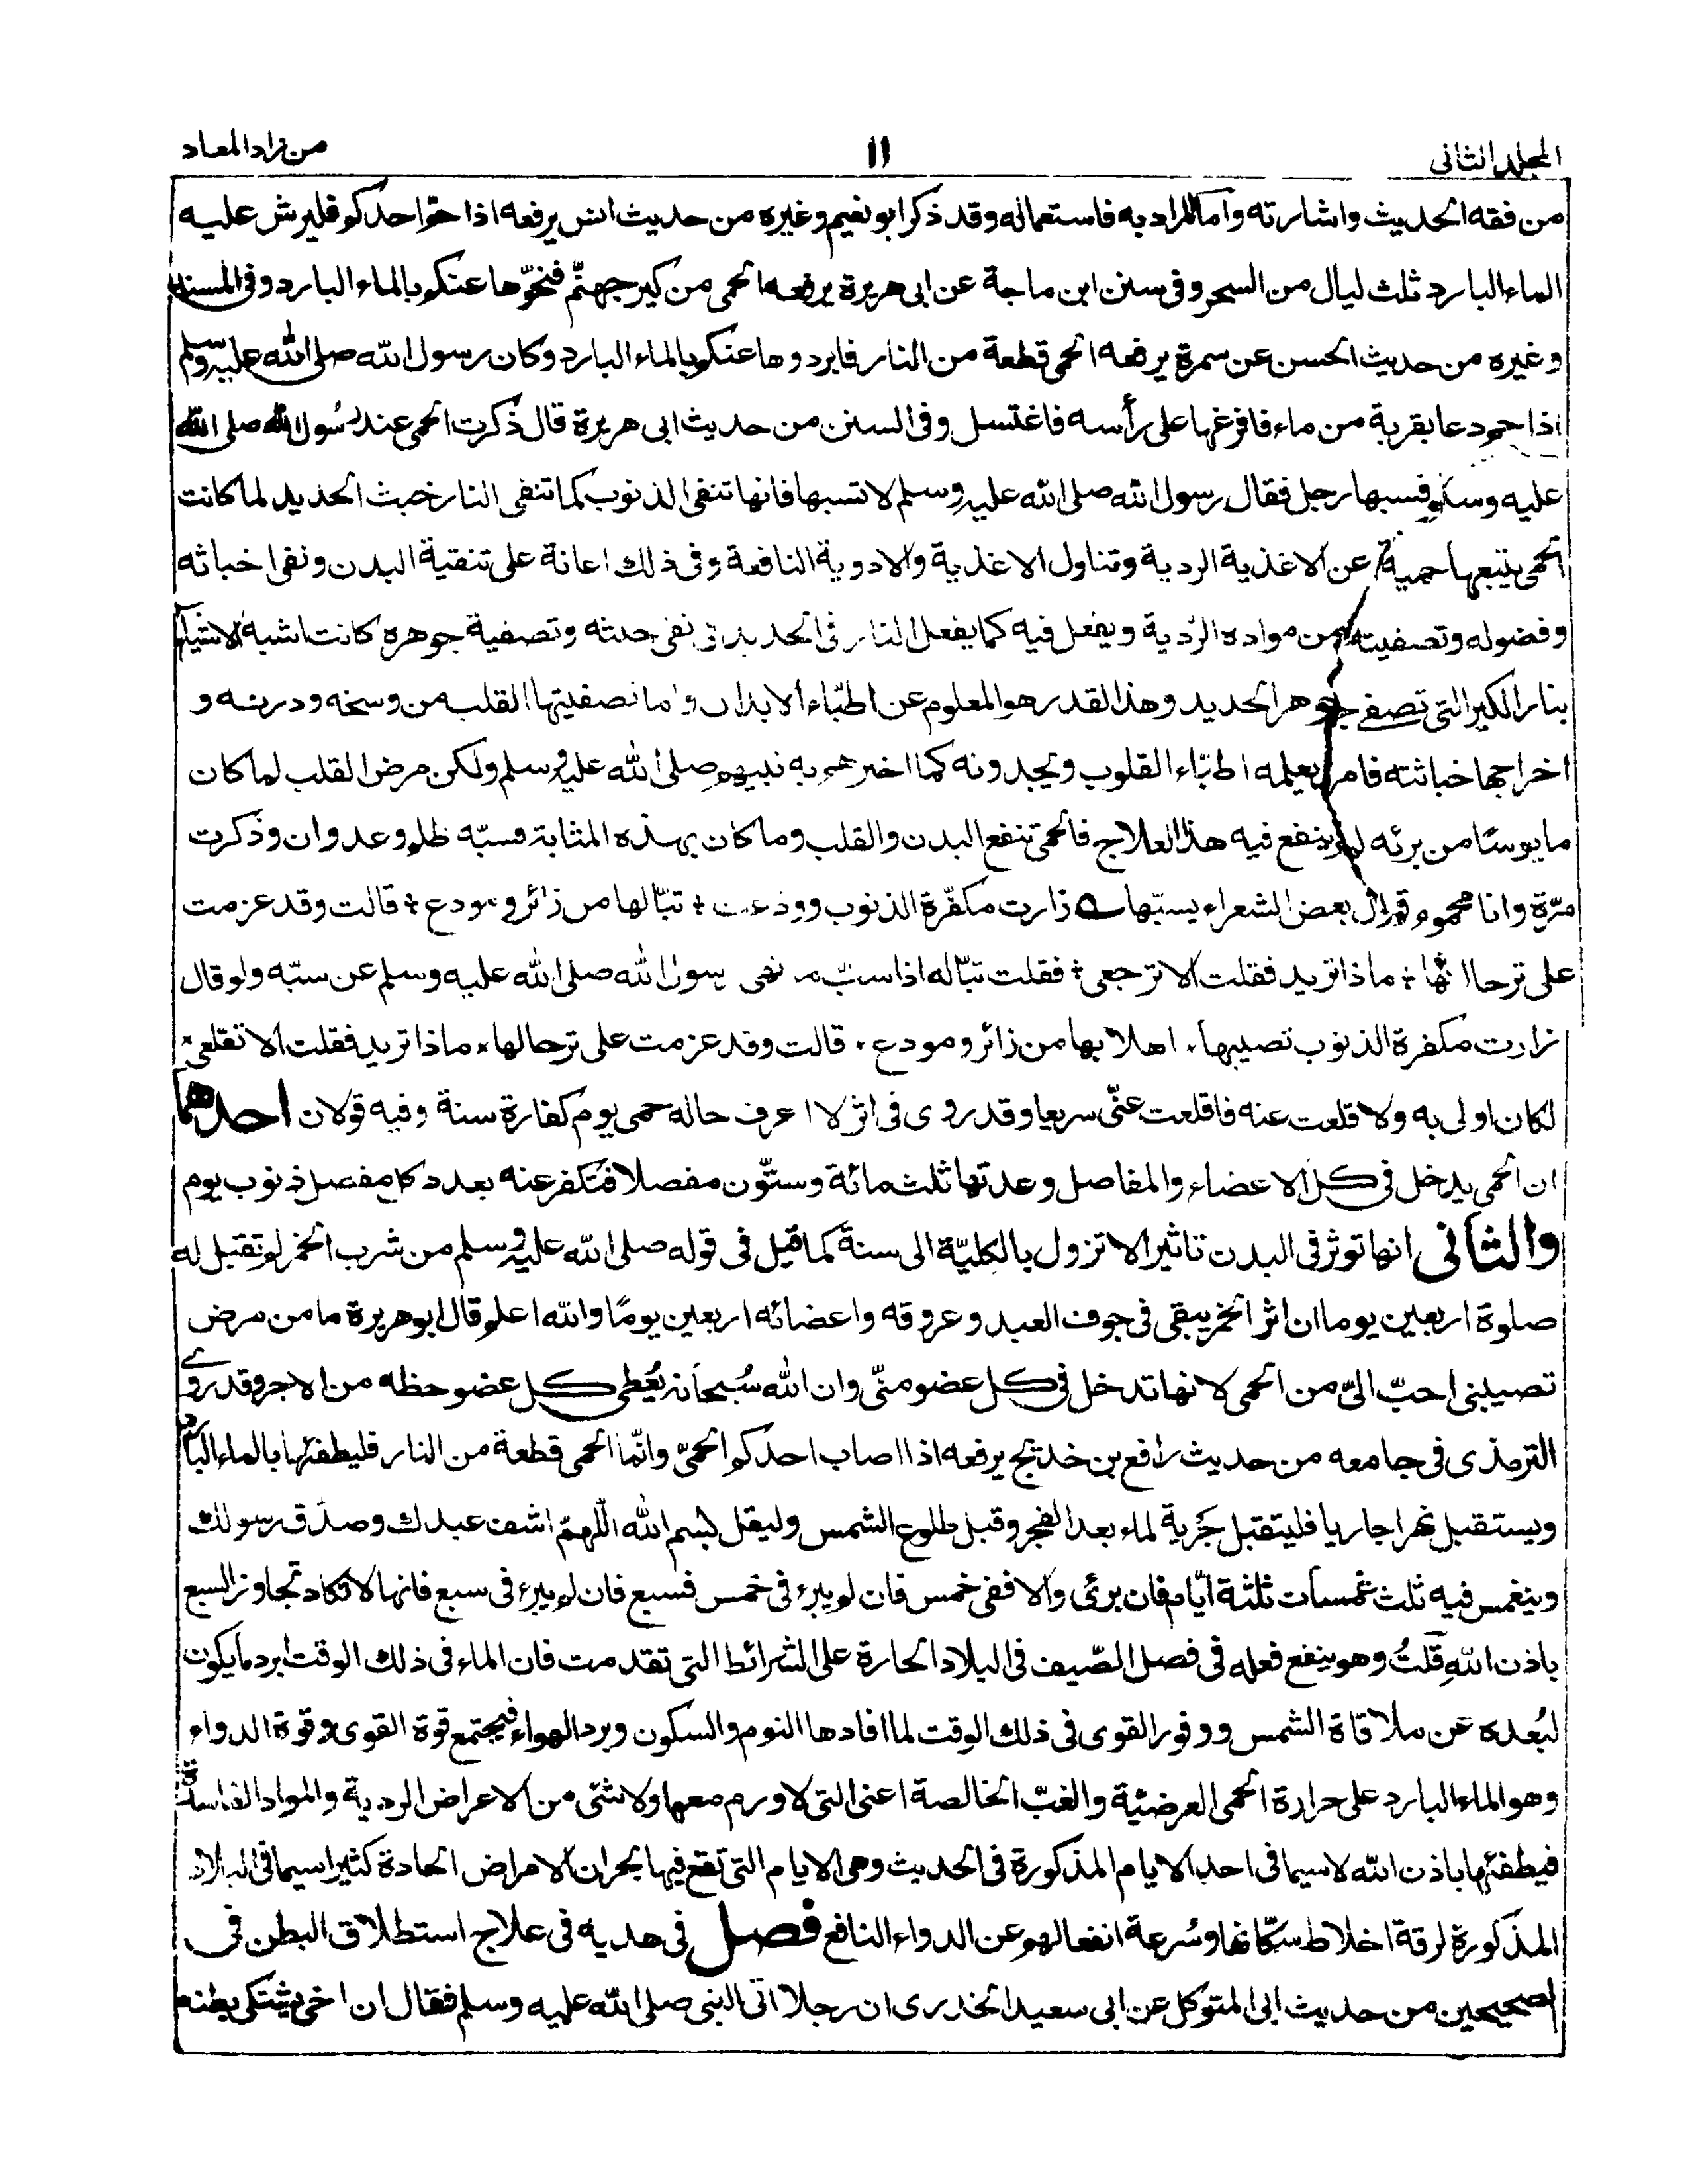 المجلد الثانى
١١
من زاد المعاد
من فقه الحديث واشارته واما المراد به فاستعماله وقد ذكر ابو نعيم وغيره من حديث انس يرفعه اذا حم احدكم فليرش عليه
الماء البارد ثلث ليال من السحر وفى سنن ابن ماجة عن ابى هريرة يرفعه الحمى من كير جهنّم فنحّوها عنكم بالماء البارد وفى المسند
وغيره من حديث الحسن عن سمرة يرفعه الحمى قطعة من النار فابردوها عنكم بالماء البارد وكان رسول الله صلى الله عليه وسلم
اذا حم دعا بقربة من ماء فافرغها على رأسه فاغتسل وفى السنن من حديث ابى هريرة قال ذكرت الحمى عند رسول الله صلى الله
عليه وسلم فسبها رجل فقال رسول الله صلى الله عليه وسلم لا تسبها فانها تنفى الذنوب كما تنفى النار خبث الحديد لما كانت
الحمى يتبعها حمية عن الاغذية الردية وتناول الاغذية والادوية النافعة وفى ذلك اعانة على تنقية البدن ونفى اخباثه
وفضوله وتصفيته من مواده الردية ويفعل فيه كما يفعل النار فى الحديد فى نفى خبثه وتصفية جوهره كانت اشبه الاشياء
بنار الكير التى تصفى جوهر الحديد وهذا القدر هو المعلوم عن اطبّاء الابدان واما تصفيتها القلب من وسخه ودرنه و
اخراجها خباثته فامر يعلمه اطبّاء القلوب ويجدونه كما اخبرهم به نبيهم صلى الله عليه وسلم ولكن مرض القلب لما كان
مايوسًا من برئه لم ينفع فيه هذا العلاج فالحمى تنفع البدن والقلب وما كان بهذه المثابة فسبّه ظلم وعدوان وذكرت
مرّة وانا محموم قول بعض الشعراء يسبّها زارت مكفّرة الذنوب وودعت ؛ تبّا لها من زائر ومودع ؛ قالت وقد عزمت
على ترحالها ؛ ماذا تريد فقلت ألا ترجعى ؛ فقلت تبّا له اذا سبّ ما نهى رسول الله صلى الله عليه وسلم عن سبّه ولو قال
زارت مكفرة الذنوب لصبها، اهلا بها من زائر ومودع ، قالت وقد عزمت على ترحالها، ماذا تريد فقلت ألا تقلعى
لكان اولى به ولا قلعت عنه فاقلعت عنّى سريعا وقد روى فى اثر لا اعرف حاله حمى يوم كفارة سنة وفيه قولان احدهما
ان الحمى يدخل فى كل الاعضاء والمفاصل وعدتها ثلث مائة وستّون مفصلا فتكفر عنه بعدد كل مفصل ذنوب يوم
والثانى انها توثر فى البدن تاثيرا لا تزول بالكليّة الى سنة كما قيل فى قوله صلى الله عليه وسلم من شرب الخمر لم تقبل له
صلوة اربعين يوما ان اثر الخمر يبقى فى جوف العبد وعروقه واعضائه اربعين يومًا والله اعلم قال ابو هريرة ما من مرض
تصيبنى احبّ الىّ من الحمى لانها تدخل فى كل عضو منّى وان الله سُبحانه يُعطى كل عضو حظه من الاجر وقد روى
الترمذى فى جامعه من حديث رافع بن خديج يرفعه اذا اصاب احدكم الحمىّ وانّما الحمى قطعة من النار فليطفئها بالماء البارد
ويستقبل نهرا جاريا فليتقبل جَرية لماء بعد الفجر وقبل طلوع الشمس وليقل بسم الله اللّهمّ اشف عبدك وصدّق رسولك
وينغمس فيه ثلث غمسات ثلثة ايّام فان برئ والا ففى خمس فان لم يبرء فى خمس فسبع فان لم يبرء فى سبع فانها لا تكاد تجاوز السبع
باذن اللهِ قلتُ وهو ينفع فعله فى فصل الصّيف فى البلاد الحارة على الشرائط التى تقدمت فان الماء فى ذلك الوقت ابرد ما يكون
لبُعده عن ملاقاة الشمس ووفور القوى فى ذلك الوقت لما افادها النوم والسكون وبرد الهواء فيجتمع قوة القوى وقوة الدواء
وهو الماء البارد على حرارة الحمى العرضيّة والغبّ الخالصة اعنى التى لا ورم معها ولا شئى من الاعراض الردية والمواد الفاسدة
فيطفئها باذن الله لاسيما فى احد الايام المذكورة فى الحديث وهى الايام التى تقع فيها بحران الامراض الحادة كثيرا سيما فى البلاد
المذكورة لرقة اخلاط سكّانها وسُرعة انفعالهم عن الدواء النافع فصل فى هديه فى علاج استطلاق البطن فى
الصحيحين من حديث ابى المتوكل عن ابى سعيد الخدرى ان رجلا اتى النبى صلى الله عليه وسلم فقال ان اخى يشتكى بطنه